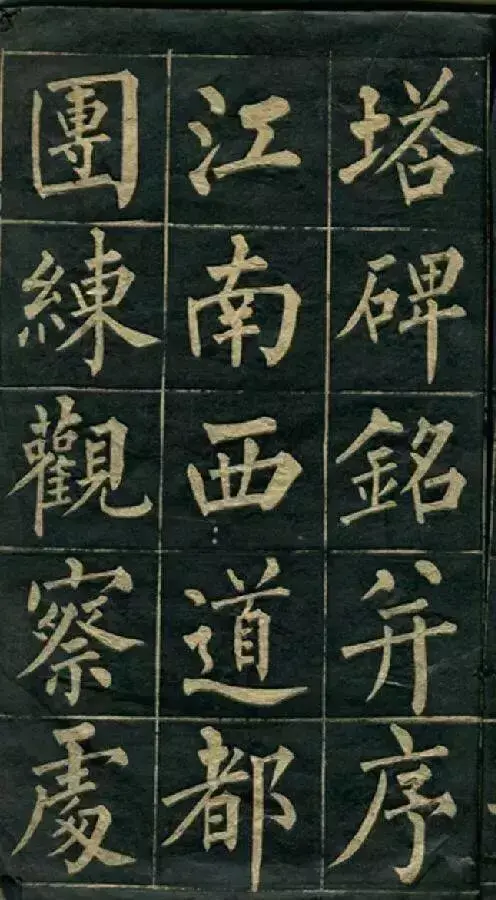 塔碑銘并序
江南西道都
團練觀察處